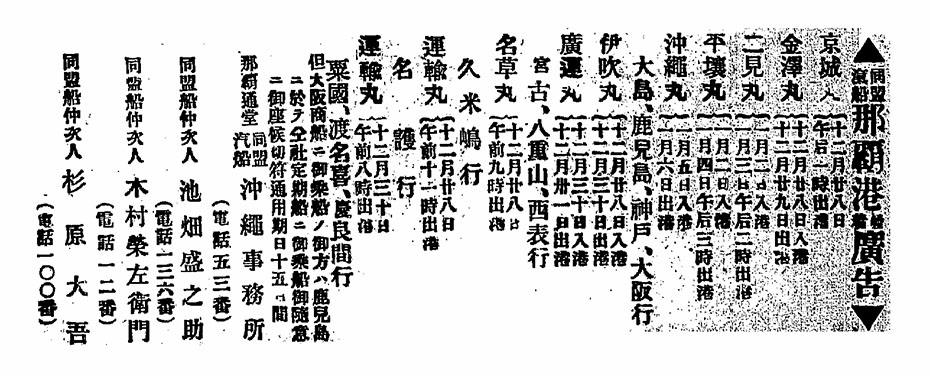 ▲同盟滊船那覇港廣告▼
京城丸
十二月廿八日
午后一時出港
金澤丸
十二月廿八日入港
十二月廿九日出港
二見丸
一月二日入港
一月三日午后二時出港
平壤丸
一月四日午后三時出港
沖繩丸
一月五日入港
一月六日出港
大島、鹿兒島、神戸、大阪行
伊吹丸
十二月廿八日入港
十二月三十日出港
廣運丸
十二月三十日入港
十二月卅一日出港
宮古、八重山、西表行
名草丸
十二月廿八日
午前九時出港
久米嶋行
運輸丸
十二月廿八日
午前十一時出港
名護行
運輸丸
十二月三十日
午前八時出港
粟國、渡名喜、慶良間行
但大阪商船ニ御乘船ノ御方ハ鹿兒島
ニ於テ仝社定期船ニ御乘船御隨意
ニ御座候切符通用期日十五日間
那覇通堂 同盟汽船 沖繩事務所
(電話五三番)
同盟船仲次人 池畑盛之助
(電話一三六番)
同盟船仲次人 木村榮左衛門
(電話一二番)
同盟船仲次人 杉原大吾
(電話一〇〇番)